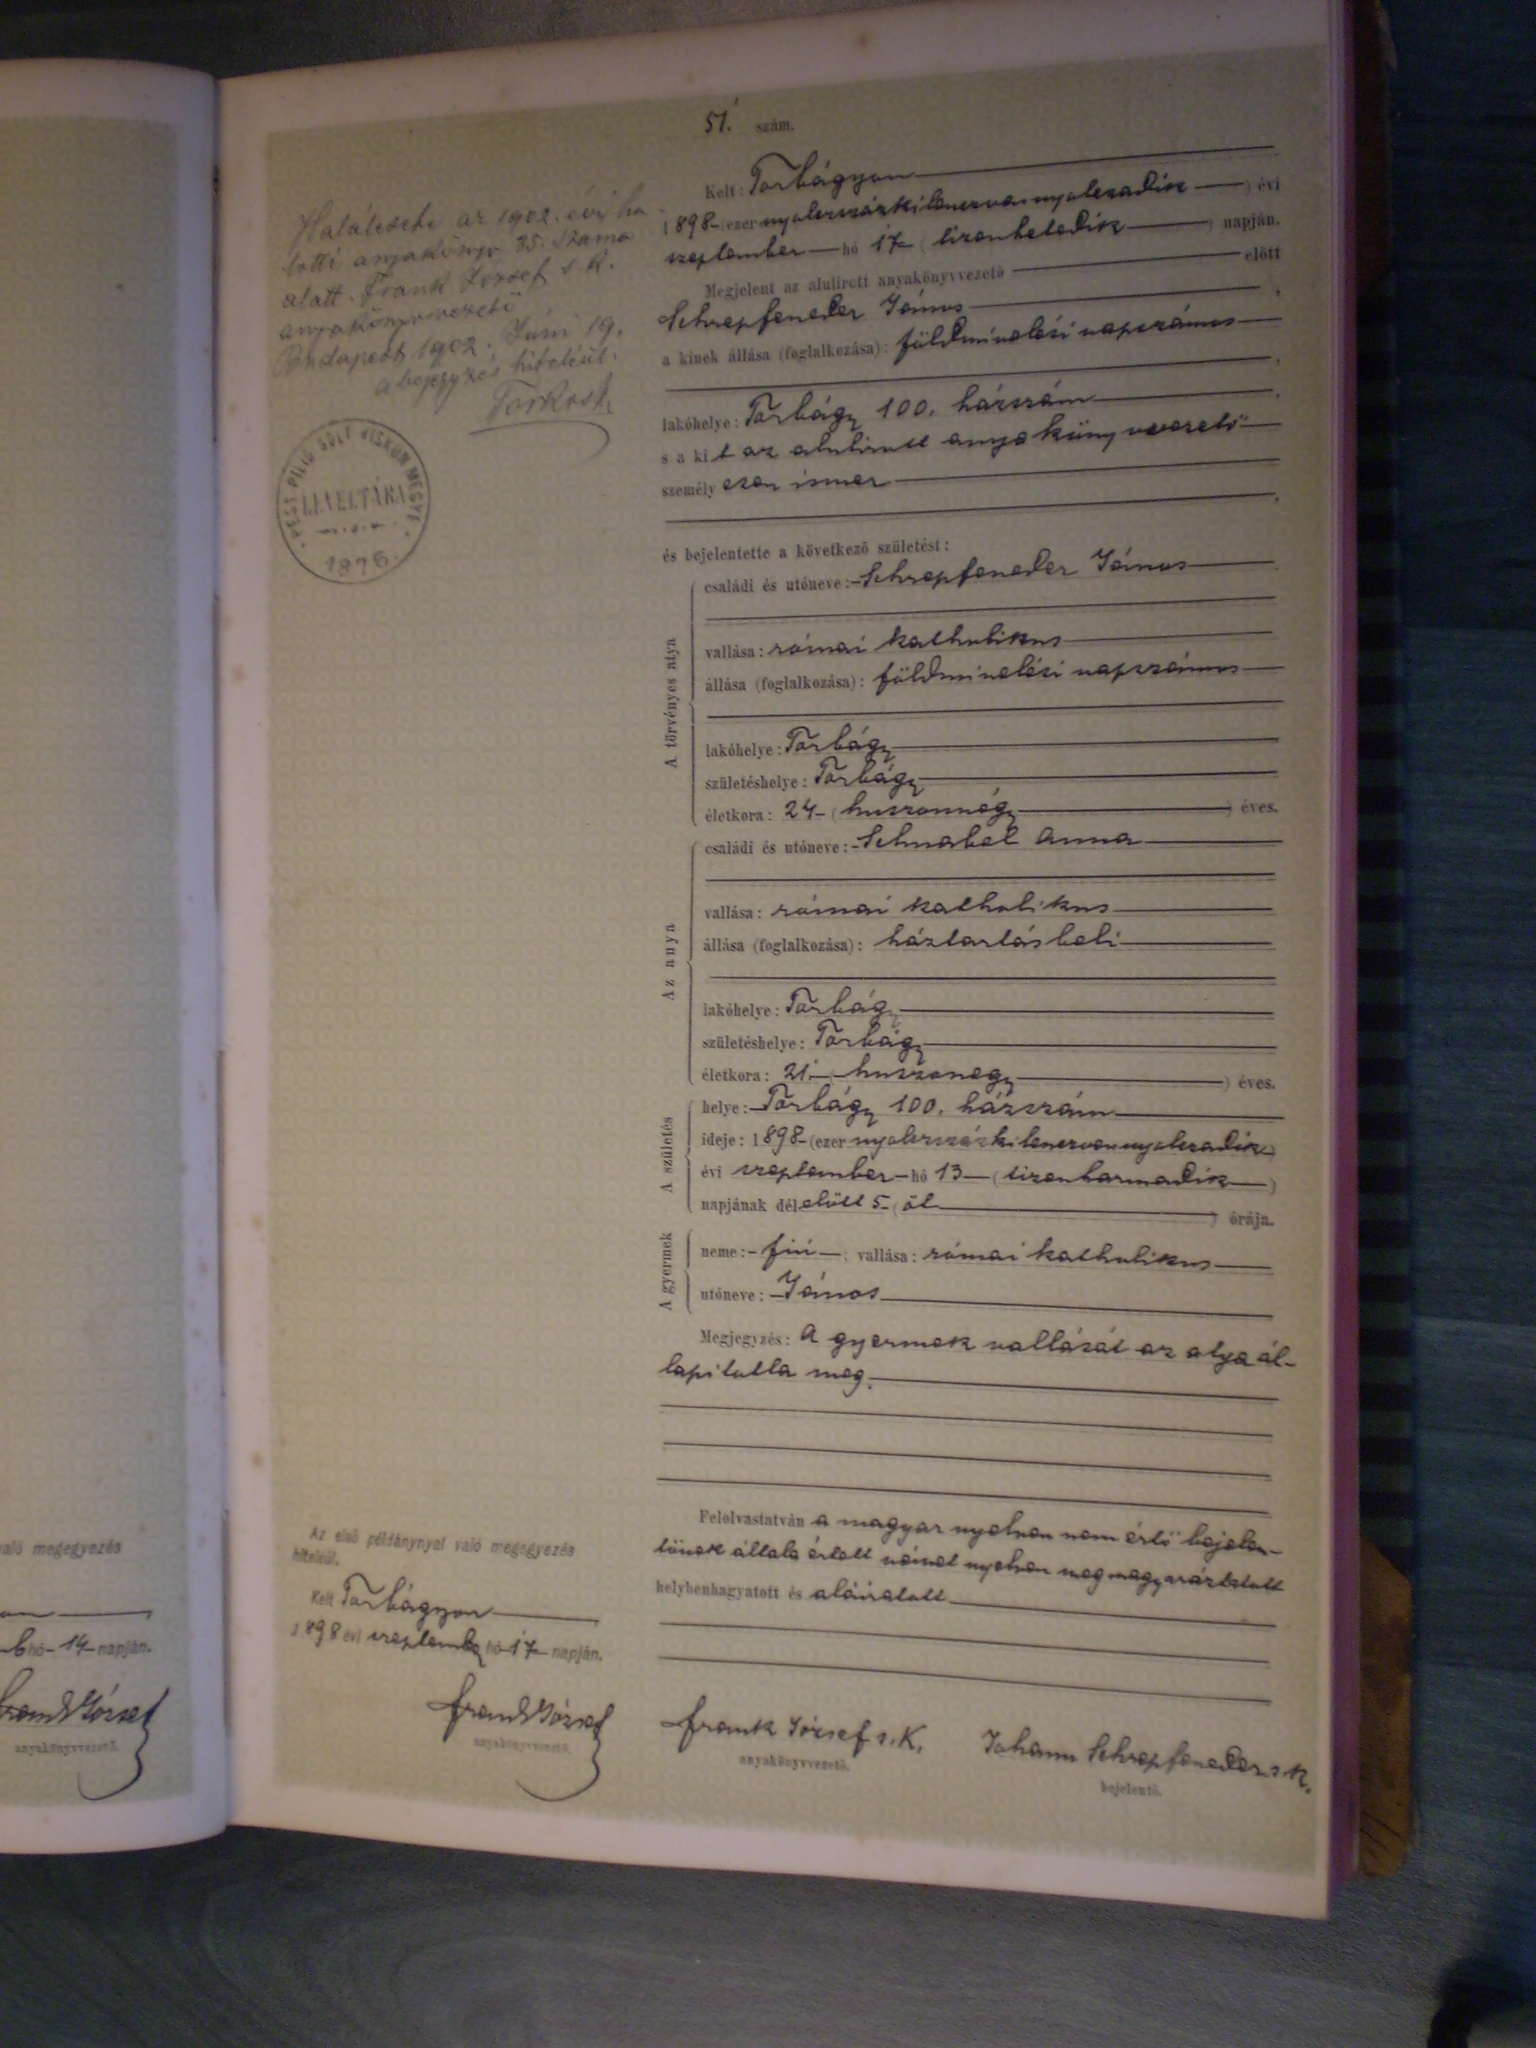 51. szám.
Kelt: Torbágyon
1898 (ezer nyolczszázkilenczvennyolczadik) évi
szeptember hó 17 (tizenhetedik) napján.
Megjelent az alulirott anyakönyvvezető előtt
Schrepfeneder János,
a kinek állása (foglalkozása): földmivelési napszámos,
lakóhelye: Torbágy 100. házszám,
s a kit az alulirott anyakönyvvezető
személyesen ismer.
és bejelentette a következő születést:
A törvényes atya
családi és utóneve: Schrepfeneder János
vallása: római katholikus
állása (foglalkozása): földmivelési napszámos
lakóhelye: Torbágy
születéshelye: Torbágy
életkora: 24 (huszonnégy) éves.
Az anya
családi és utóneve: Schnabel Anna
vallása: római katholikus
állása (foglalkozása): háztartásbeli
lakóhelye: Torbágy
születéshelye: Torbágy
életkora: 21 (huszonegy) éves.
A születés
helye: Torbágy 100. házszám
ideje: 1898 (ezer nyolczszázkilenczvennyolczadik)
évi szeptember hó 13 (tizenharmadik)
napjának délelőtt 5 (öt) órája.
A gyermek
neme: fiú; vallása: római katholikus
utóneve: János
Megjegyzés: A gyermek vallását az atya ál-
lapitotta meg.
Felolvastatván a magyar nyelven nem értő bejelen-
tőnek általa értett német nyelven megmagyaráztatott
helybenhagyatott és aláiratott
Frank József s. k.
anyakönyvvezető.
Johann Schrepfeneder s. k.
bejelentő.
Halálesete az 1902. évi ha-
lotti anyakönyv 35. száma
alatt. Frank József s. k.
anyakönyvvezető
Budapest 1902. Juni 19.
a bejegyzés hiteléül:
PEST PILIS SOLT KISKUN MEGYE
LEVÉLTÁRA
1876
Az első példánynyal való megegyezés
hiteléül.
Kelt Torbágyon
1898 évi szeptember hó 17 napján.
Frank József
anyakönyvvezető.
való megegyezés
hó 14 napján.
Frank József
anyakönyvvezető.